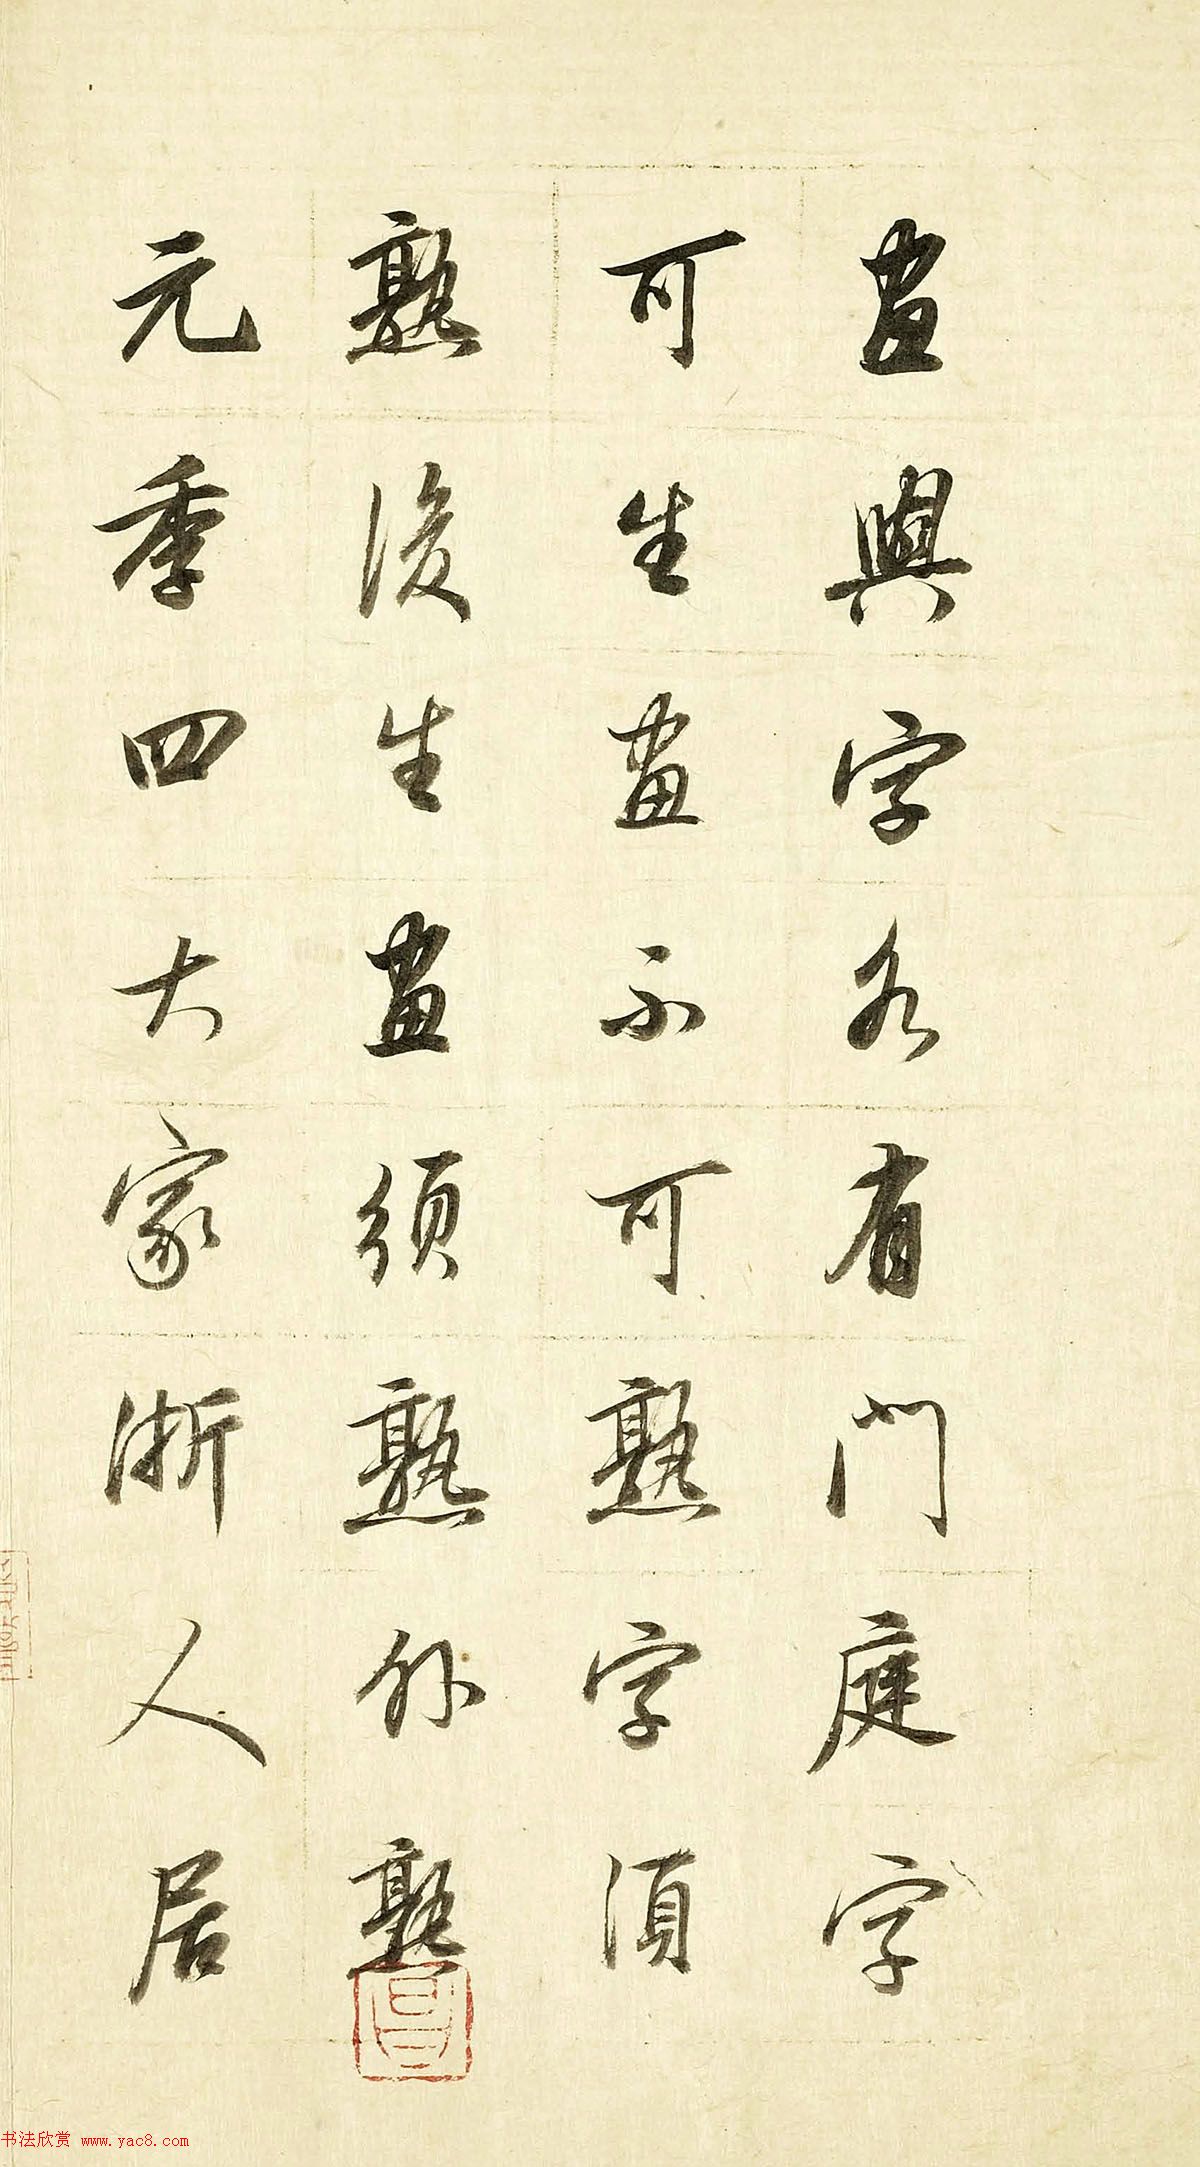 畫與字各有門庭字
可生畫不可熟字須
熟後生畫須熟外熟
元季四大家浙人居
书法欣赏 www.yac8.com